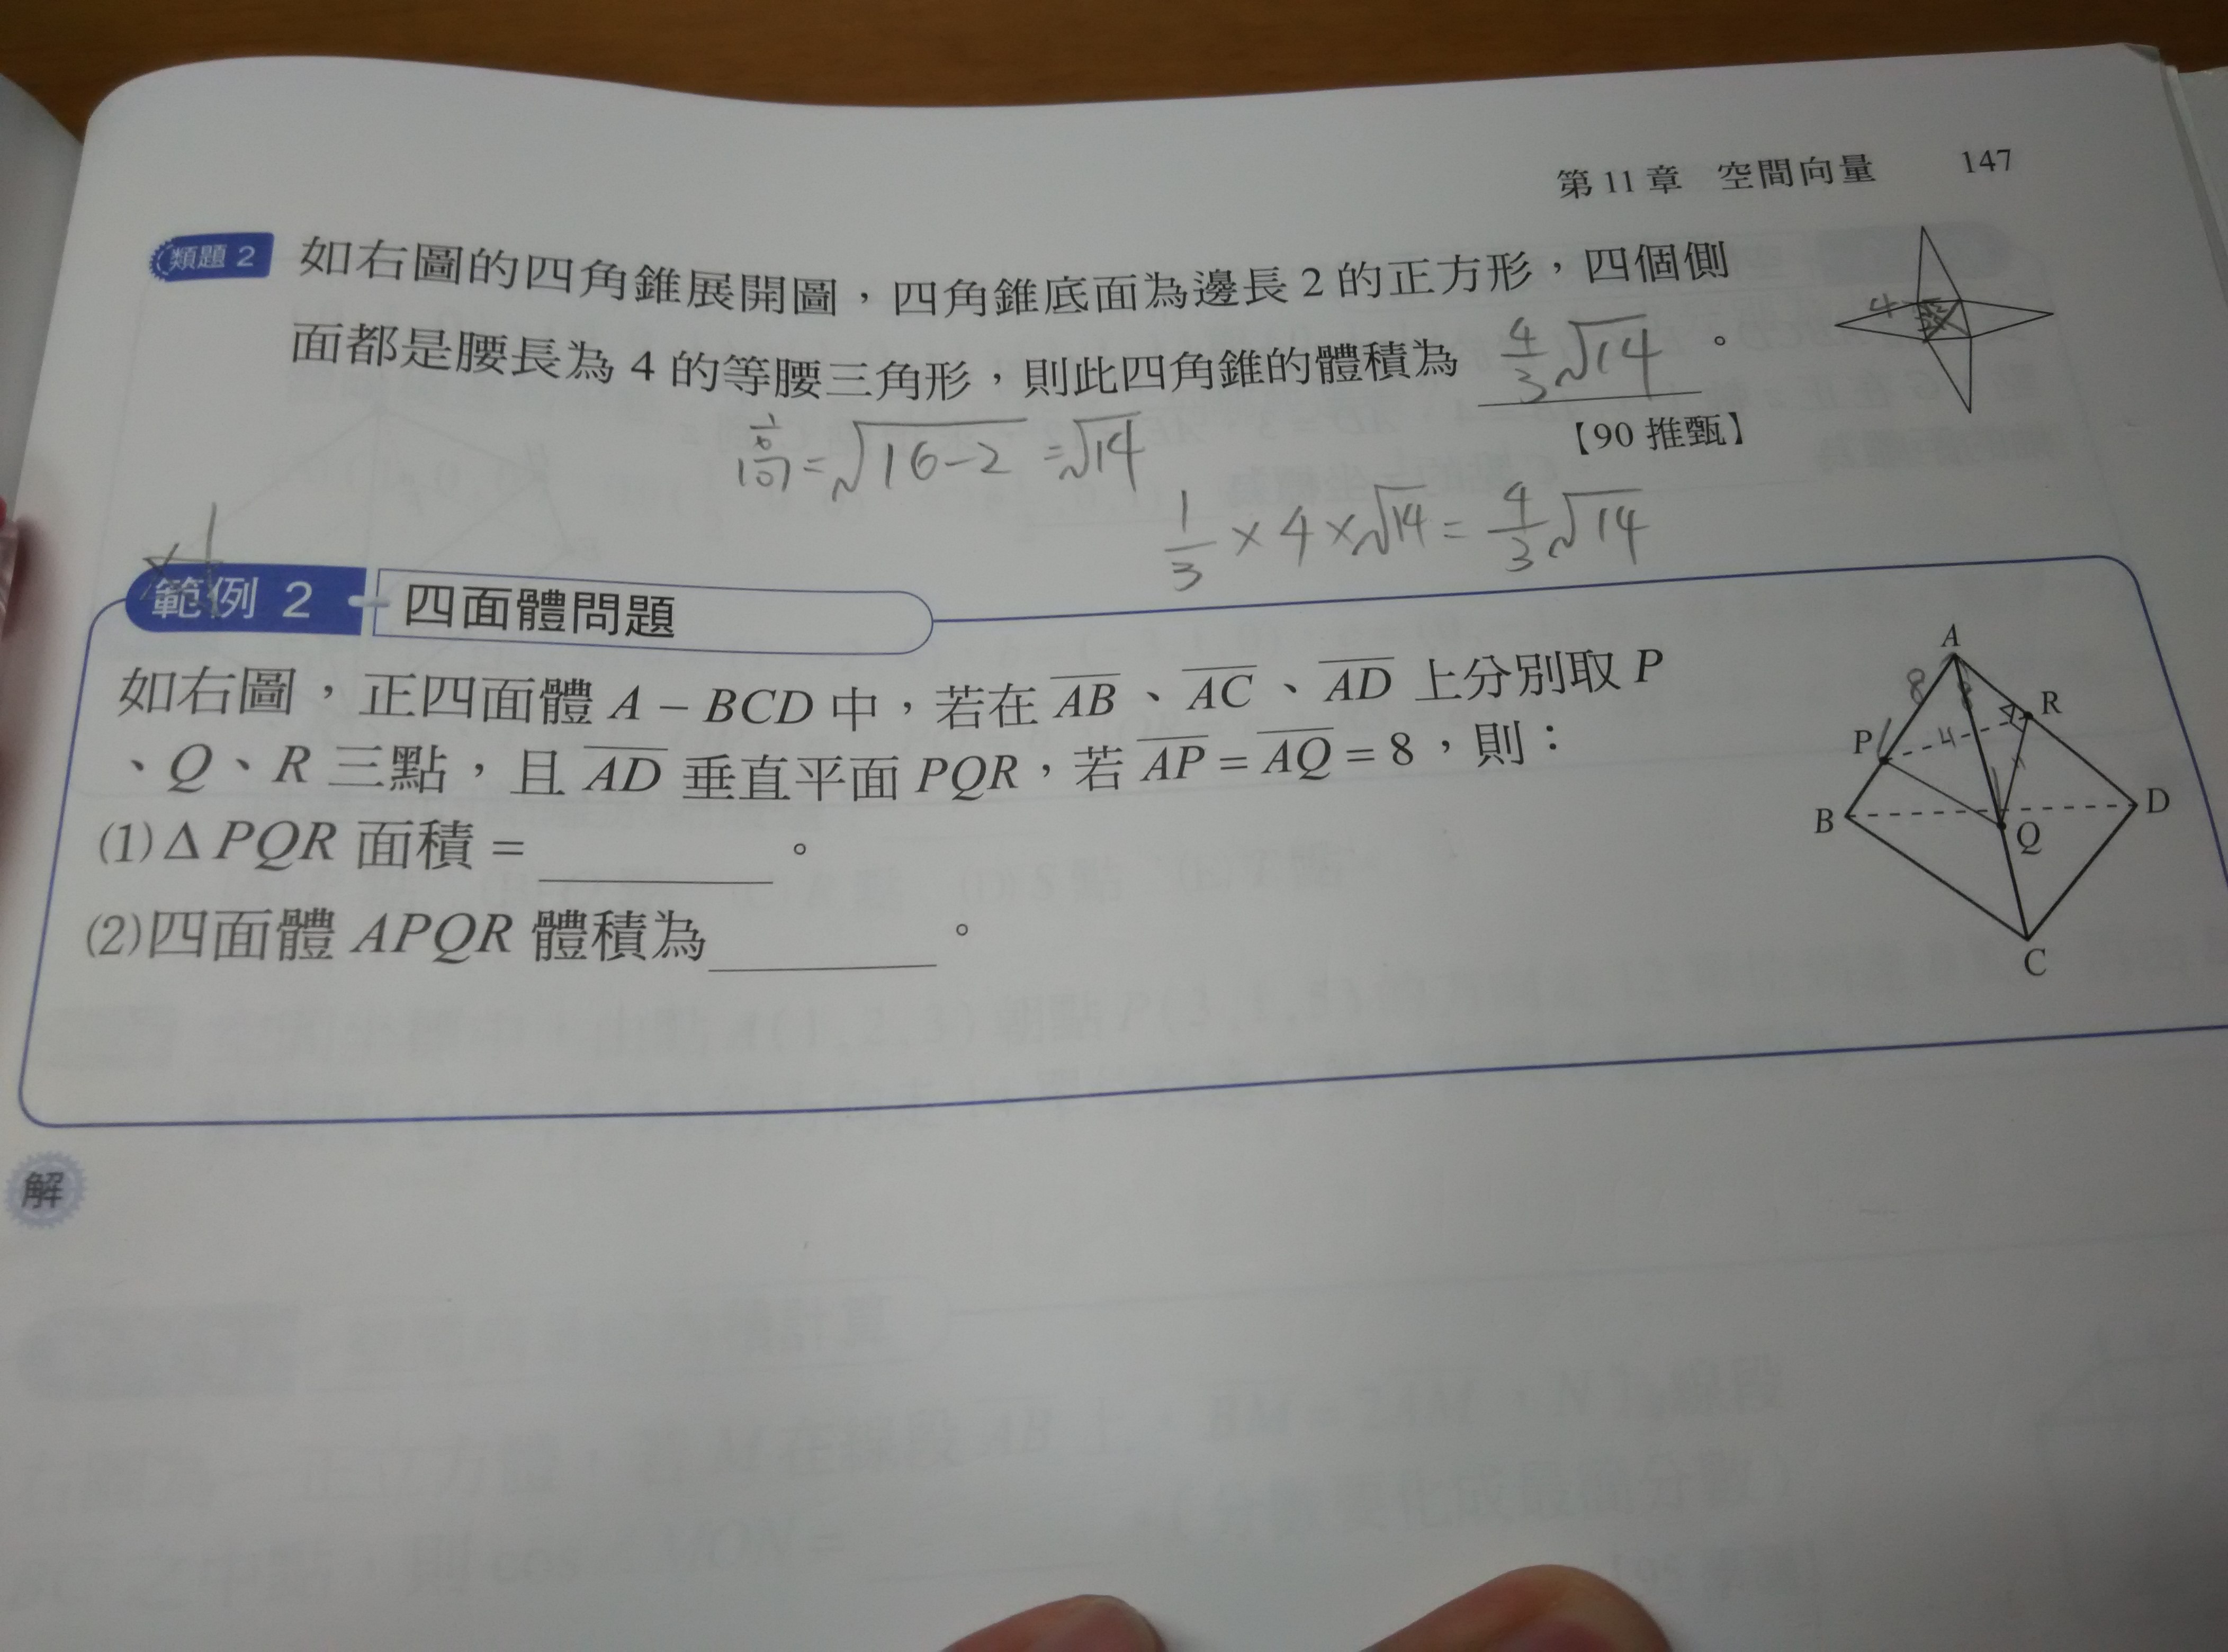 第 11 章 空間向量 147
類題 2 如右圖的四角錐展開圖，四角錐底面為邊長 2 的正方形，四個側
面都是腰長為 4 的等腰三角形，則此四角錐的體積為 4/3 √14 。
4
【90 推甄】
高 = √16-2 = √14
1/3 × 4 × √14 = 4/3 √14
範例 2 四面體問題
如右圖，正四面體 A – BCD 中，若在 AB、AC、AD 上分別取 P
、Q、R 三點，且 AD 垂直平面 PQR，若 AP = AQ = 8，則：
(1) Δ PQR 面積 = ________ 。
(2) 四面體 APQR 體積為 ________ 。
A
8 8
R
P 4
B D
Q
C
解